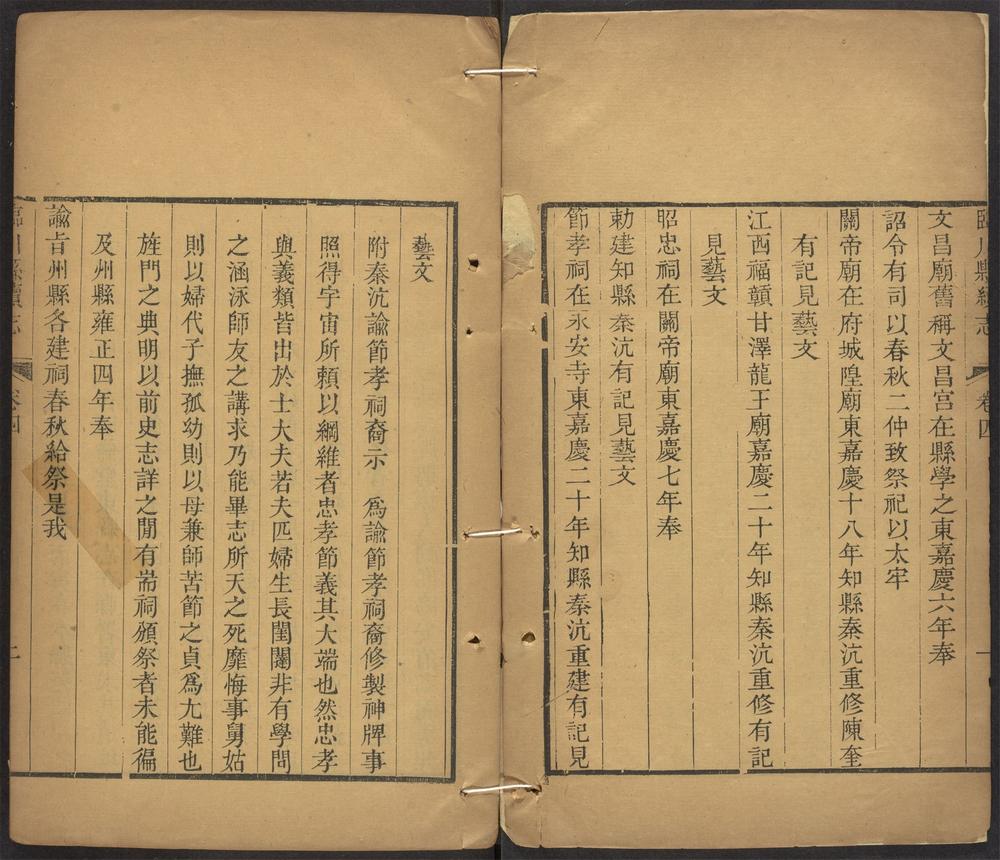 臨川縣續志 卷四 一
文昌廟舊稱文昌宮在縣學之東嘉慶六年奉
詔令有司以春秋二仲致祭祀以太牢
關帝廟在府城隍廟東嘉慶十八年知縣秦沆重修陳奎
有記見藝文
江西福贛甘澤龍王廟嘉慶二十年知縣秦沆重修有記
見藝文
昭忠祠在關帝廟東嘉慶七年奉
勅建知縣秦沆有記見藝文
節孝祠在永安寺東嘉慶二十年知縣秦沆重建有記見
藝文
附秦沆諭節孝祠裔示 爲諭節孝祠裔修製神牌事
照得宇宙所賴以綱維者忠孝節義其大端也然忠孝
與義類皆出於士大夫若夫匹婦生長閨闥非有學問
之涵泳師友之講求乃能畢志所天之死靡悔事舅姑
則以婦代子撫孤幼則以母兼師苦節之貞爲尤難也
旌門之典明以前史志詳之閒有耑祠頒祭者未能徧
及州縣雍正四年奉
諭旨州縣各建祠春秋給祭是我
臨川縣續志 卷四 二